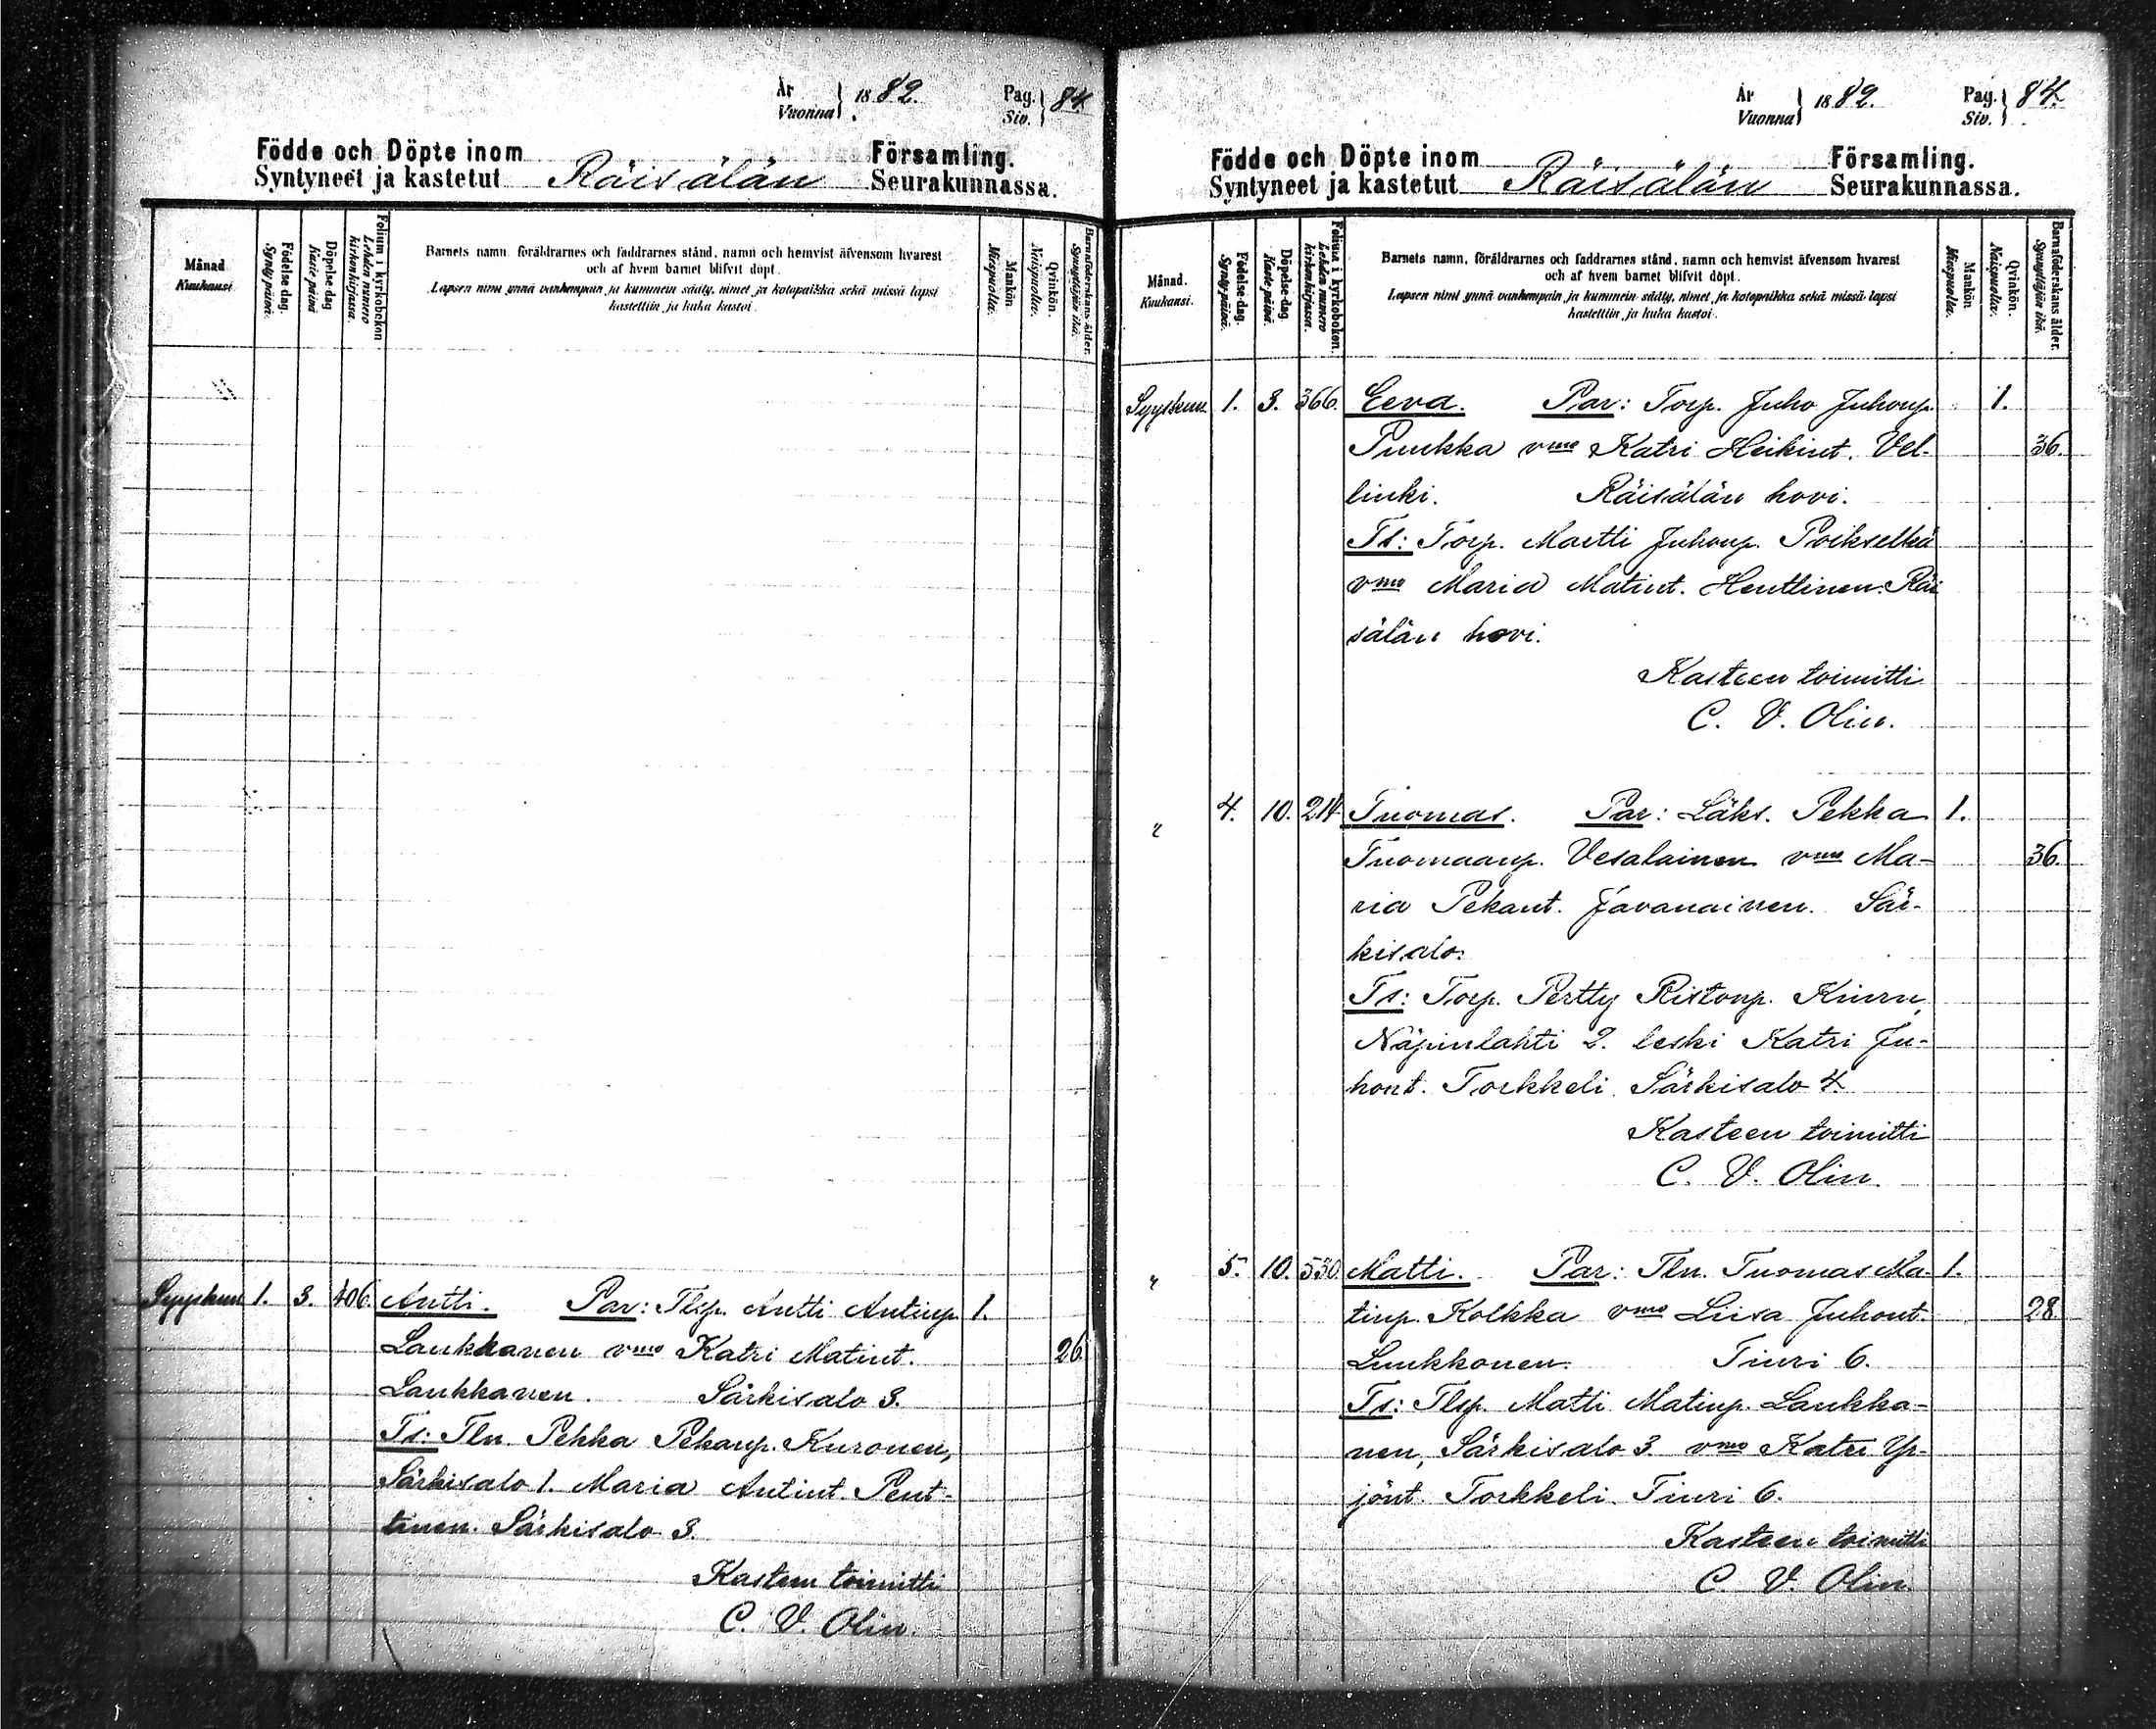 År
Vuonna } 1882.
Pag.
Siv. } 84.
Födde och Döpte inom Församling.
Syntyneet ja kastetut Räisälän Seurakunnassa.
Månad
Kuukausi
Födelse dag.
Synty päivä.
Döpelse dag
Kaste päivä
Folium i kyrkoboken
Lehden numero
kirkonkirjassa.
Barnets namn, föräldrarnes och faddrarnes stånd, namn och hemvist äfvensom hvarest
och af hvem barnet blifvit döpt.
Lapsen nimi ynnä vanhempain ja kummein sääty, nimet ja kotopaikka sekä missä lapsi
kastettiin ja kuka kastoi.
Mankön
Miespuolia.
Qvinkön.
Naispuolia.
Barnaföderskans ålder.
Synnyttäjän ikä.
Syyskuu 1. 3. 406. Antti. Par: Tlsp. Antti Antinp. 1.
Laukkanen vmo Katri Matint. 26.
Laukkanen. Särkisalo 3.
Ts: Tln Pekka Pekanp. Kuronen,
Särkisalo 1. Maria Antint. Pent-
tinen. Särkisalo 3.
Kasteen toimitti
C. V. Olin.
År
Vuonna } 1882.
Pag.
Siv. } 84.
Födde och Döpte inom Församling.
Syntyneet ja kastetut Räisälän Seurakunnassa.
Månad.
Kuukausi.
Födelse-dag.
Synty-päivä.
Döpelse-dag.
Kaste päivä.
Folium i kyrkoboken.
Lehden numero
kirkonkirjassa.
Barnets namn, föräldrarnes och faddrarnes stånd, namn och hemvist äfvensom hvarest
och af hvem barnet blifvit döpt.
Lapsen nimi ynnä vanhempain ja kummein sääty, nimet ja kotopaikka sekä missä lapsi
kastettiin ja kuka kastoi.
Mankön
Miespuolia.
Qvinkön.
Naispuolia.
Barnaföderskans ålder.
Synnyttäjän ikä.
Syyskuu 1. 3. 366. Eeva. Par: Torp. Juho Juhonp. 1.
Puukka vmo Katri Heikint. Vel- 36.
linki. Räisälän hovi.
Ts: Torp. Martti Juhonp. Poikselkä
vmo Maria Matint. Henttinen. Räi
sälän hovi.
Kasteen toimitti
C. V. Olin.
" 4. 10. 214 Tuomas. Par: Läks. Pekka 1.
Tuomaanp. Vesalainen vmo Ma- 36.
ria Pekant. Javanainen. Sär-
kisalo.
Ts: Torp. Pertty Ristonp. Kiuru,
Näpinlahti 2. leski Katri Ju-
hont. Torkkeli. Särkisalo 4.
Kasteen toimitti
C. V. Olin.
" 5. 10. 530. Matti. Par: Tln. Tuomas Ma- 1.
tinp. Kolkka vmo Liisa Juhont. 28.
Luukkonen. Tiuri 6.
Ts: Tlsp. Matti Matinp. Laukka-
nen, Särkisalo 3. vmo Katri Yr-
jönt. Torkkeli. Tiuri 6.
Kasteen toimitti
C. V. Olin.